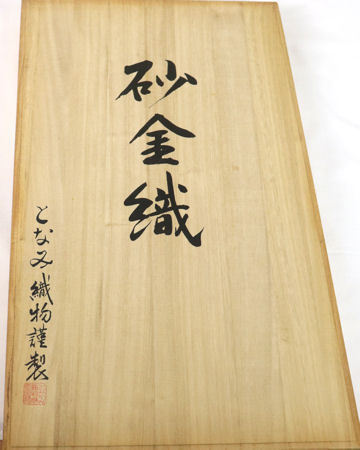 砂金織
となみ織物謹製